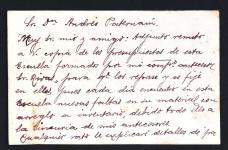 Sr. Dn. Andrés
Muy Sr. mío y amigo: Adjunto remito
a V. copia de los presupuestos de esta
Escuela formados por mi antecesor
Sr. para que los repase y se fije
en ellos pues cada día encuentro en esta
Escuela nuevas faltas en su material con
arreglo a inventario, debido todo ello a
la de mis antecesores
Cualquier rato le explicaré detalles de